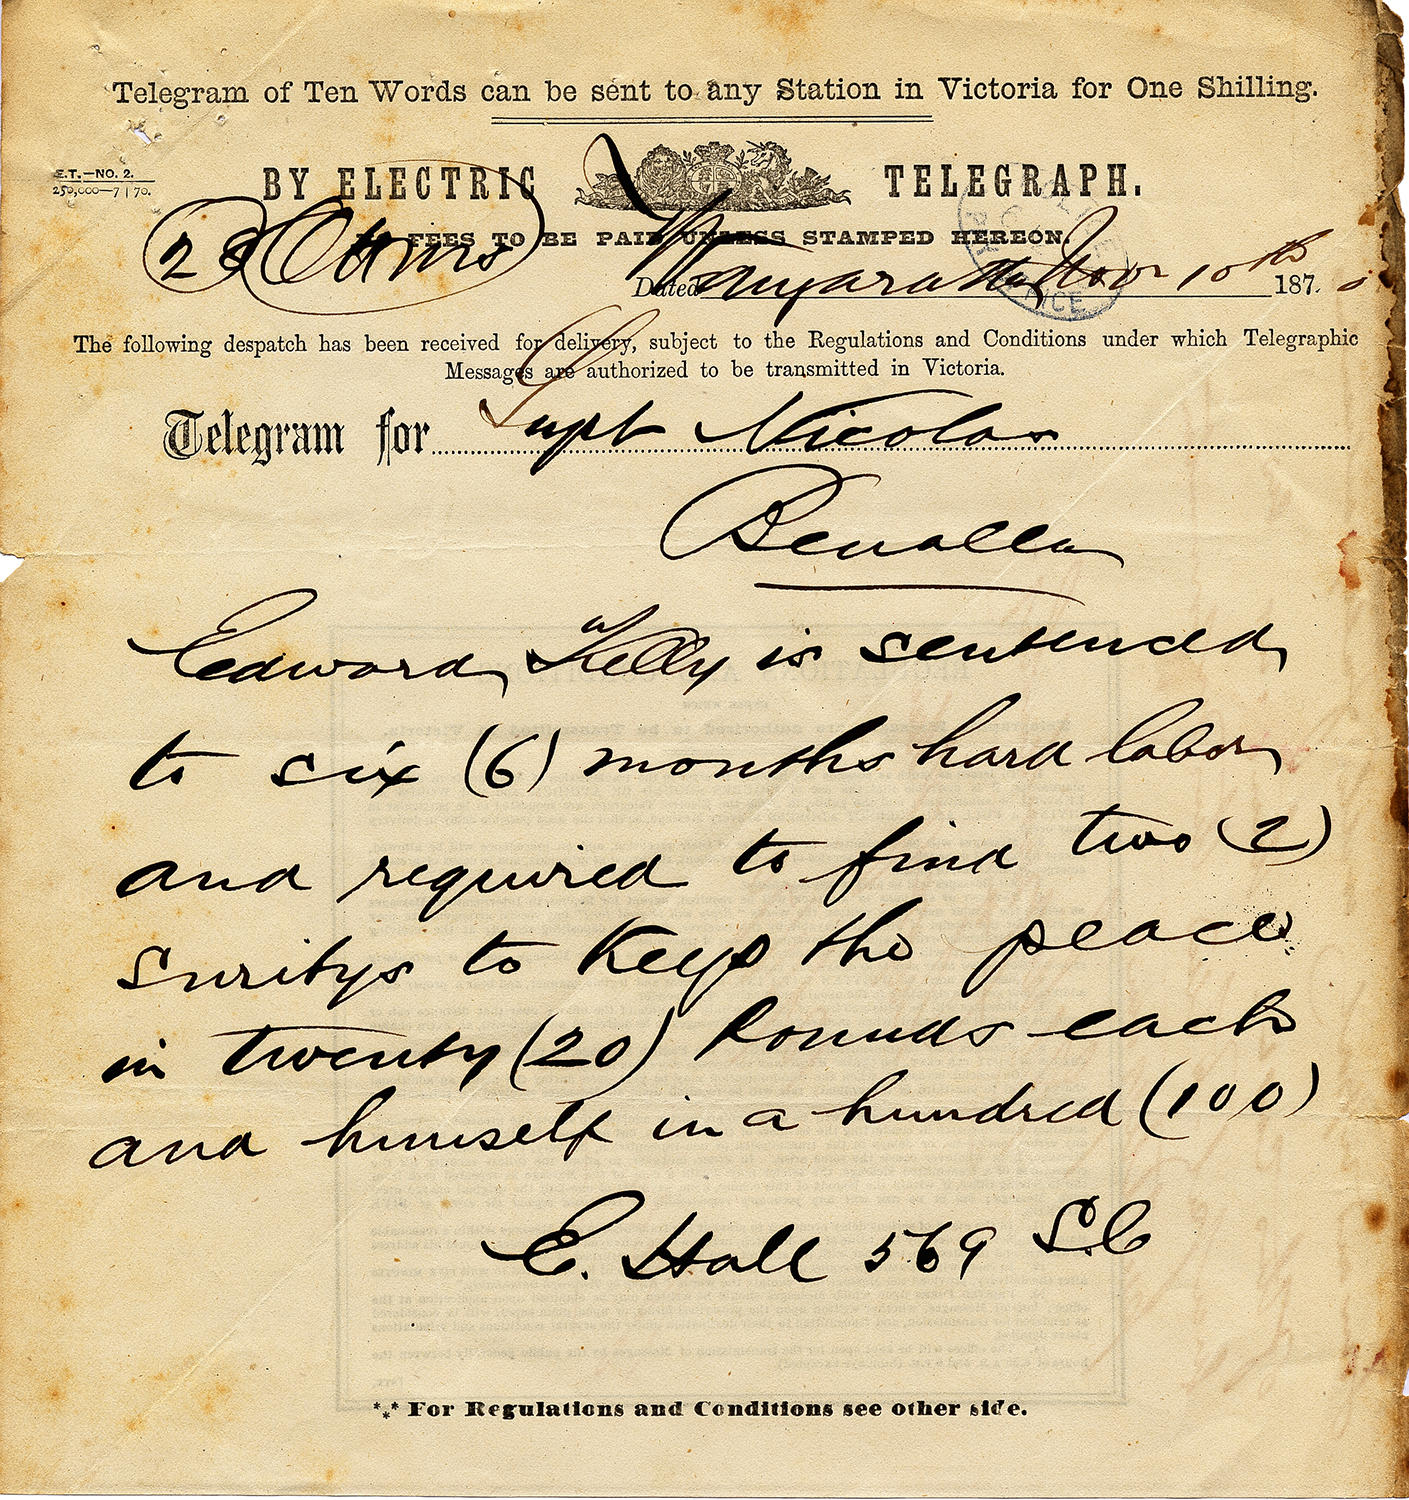 Telegram of Ten Words can be sent to any Station in Victoria for One Shilling.
E.T.—NO. 2.
250,000—7 | 70.
BY ELECTRIC TELEGRAPH.
FEES TO BE PAID UNLESS STAMPED HEREON.
Dated Wangaratta Nov 10th 1870
The following despatch has been received for delivery, subject to the Regulations and Conditions under which Telegraphic
Messages are authorized to be transmitted in Victoria.
Telegram for Supt Nicolas
Benalla
Edward Kelly is sentenced
to six (6) months hard labor
and required to find two (2)
suritys to Keep the peace
in twenty (20) Pounds each
and himself in a hundred (100)
E. Hall 569 S.C
*** For Regulations and Conditions see other side.